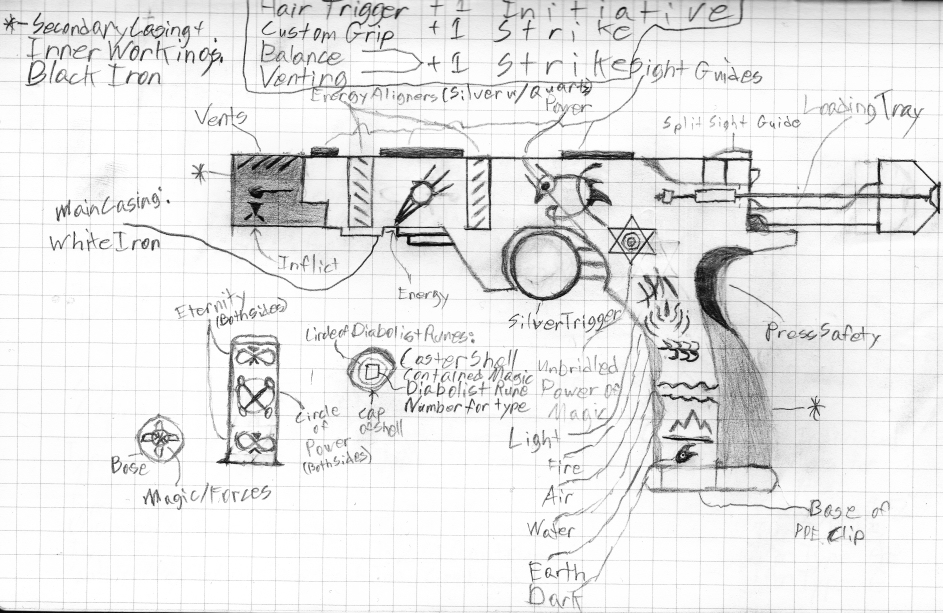 Hair Trigger +1 Initiative
Custom Grip +1 Strike
Balance
Venting +1 Strike
*-Secondary Casing +
Inner Workings:
Black Iron
Sight Guides
Energy Aligners (Silver w/ Quartz)
Power
Vents
Split Sight Guide
Loading Tray
*
Main Casing:
White Iron
Inflict
Energy
Silver Trigger
Press Safety
Eternity
(Both sides)
Circle of Diabolist Runes:
Caster Shell
Contained Magic
Diabolist Rune
Number for type
Cap
of shell
Circle
of
Power
(Both sides)
Base
Magic/Forces
Unbridled
Power of
Magic
Light
Fire
Air
Water
Earth
Dark
*
Base of
PPE Clip